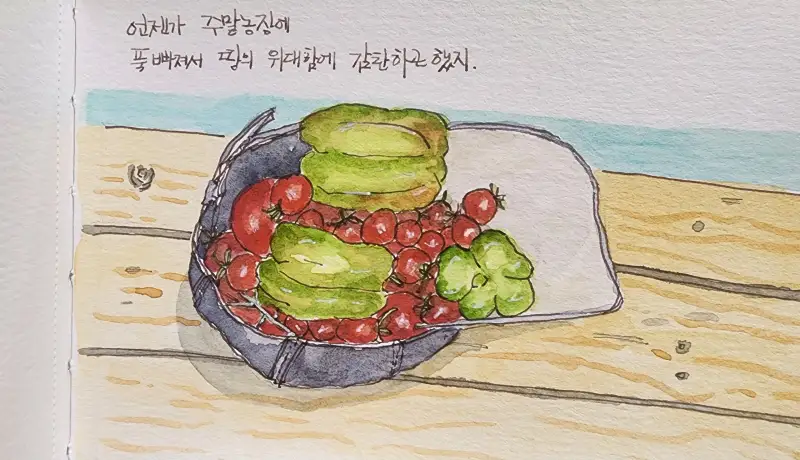 언젠가 주말농장에
푹 빠져서 땅의 위대함에 감탄하곤 했지.